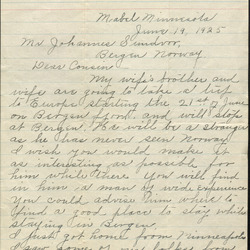 Mabel Minnesota
June 19, 1925
Mr Johannes Sundvor
Bergen Norway
Dear Cousin
My wife's brother and
wife are going to take a trip
to Europe starting the 21st of June
on Bergen fjord. and will stop
at Bergen. He will be a stranger
as he has never seen Norway
I wish you would make it
as interesting as posible for
him while there You will find
in him a man of wide experience
You could advise him where to
find a good place to stay while
staying in Bergen.
I just got home from Minneapolis
I saw some of